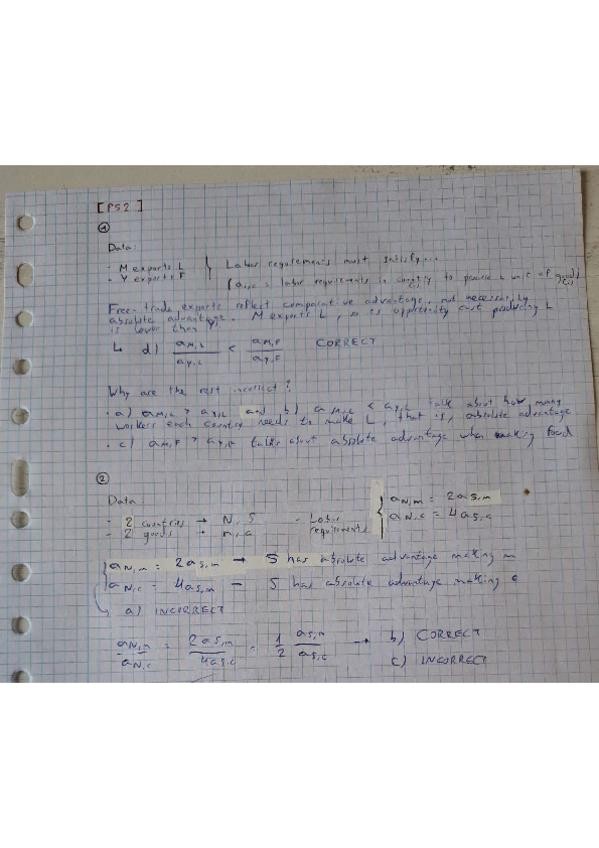 [PS2]
①
Data:
- M exports L } Labor requirements must satisfy...
- Y exports F { a = labor requirements in country to produce 1 unit of good
Free-trade exports reflect comparative advantage, not necessarily
absolute advantage. M exports L, so is opportunity cost producing L
is lower than Y
↳ d) a_{M,L} / a_{Y,L} < a_{M,F} / a_{Y,F} CORRECT
Why are the rest incorrect?
· a) a_{M,L} > a_{Y,L} and b) a_{M,L} < a_{Y,L} talk about how many
workers each country needs to make L, that is, absolute advantage
· c) a_{M,F} > a_{Y,F} talks about absolute advantage when making food
②
Data:
- 2 countries → N, S - Labor requirements { a_{N,m} = 2a_{S,m}
- 2 goods → m, c a_{N,c} = 4a_{S,c}
a_{N,m} = 2a_{S,m} → S has absolute advantage making m
a_{N,c} = 4a_{S,m} – S has absolute advantage making c
a) INCORRECT
a_{N,m} / a_{N,c} = 2a_{S,m} / 4a_{S,c} = 1/2 a_{S,m} / a_{S,c} → b) CORRECT
c) INCORRECT